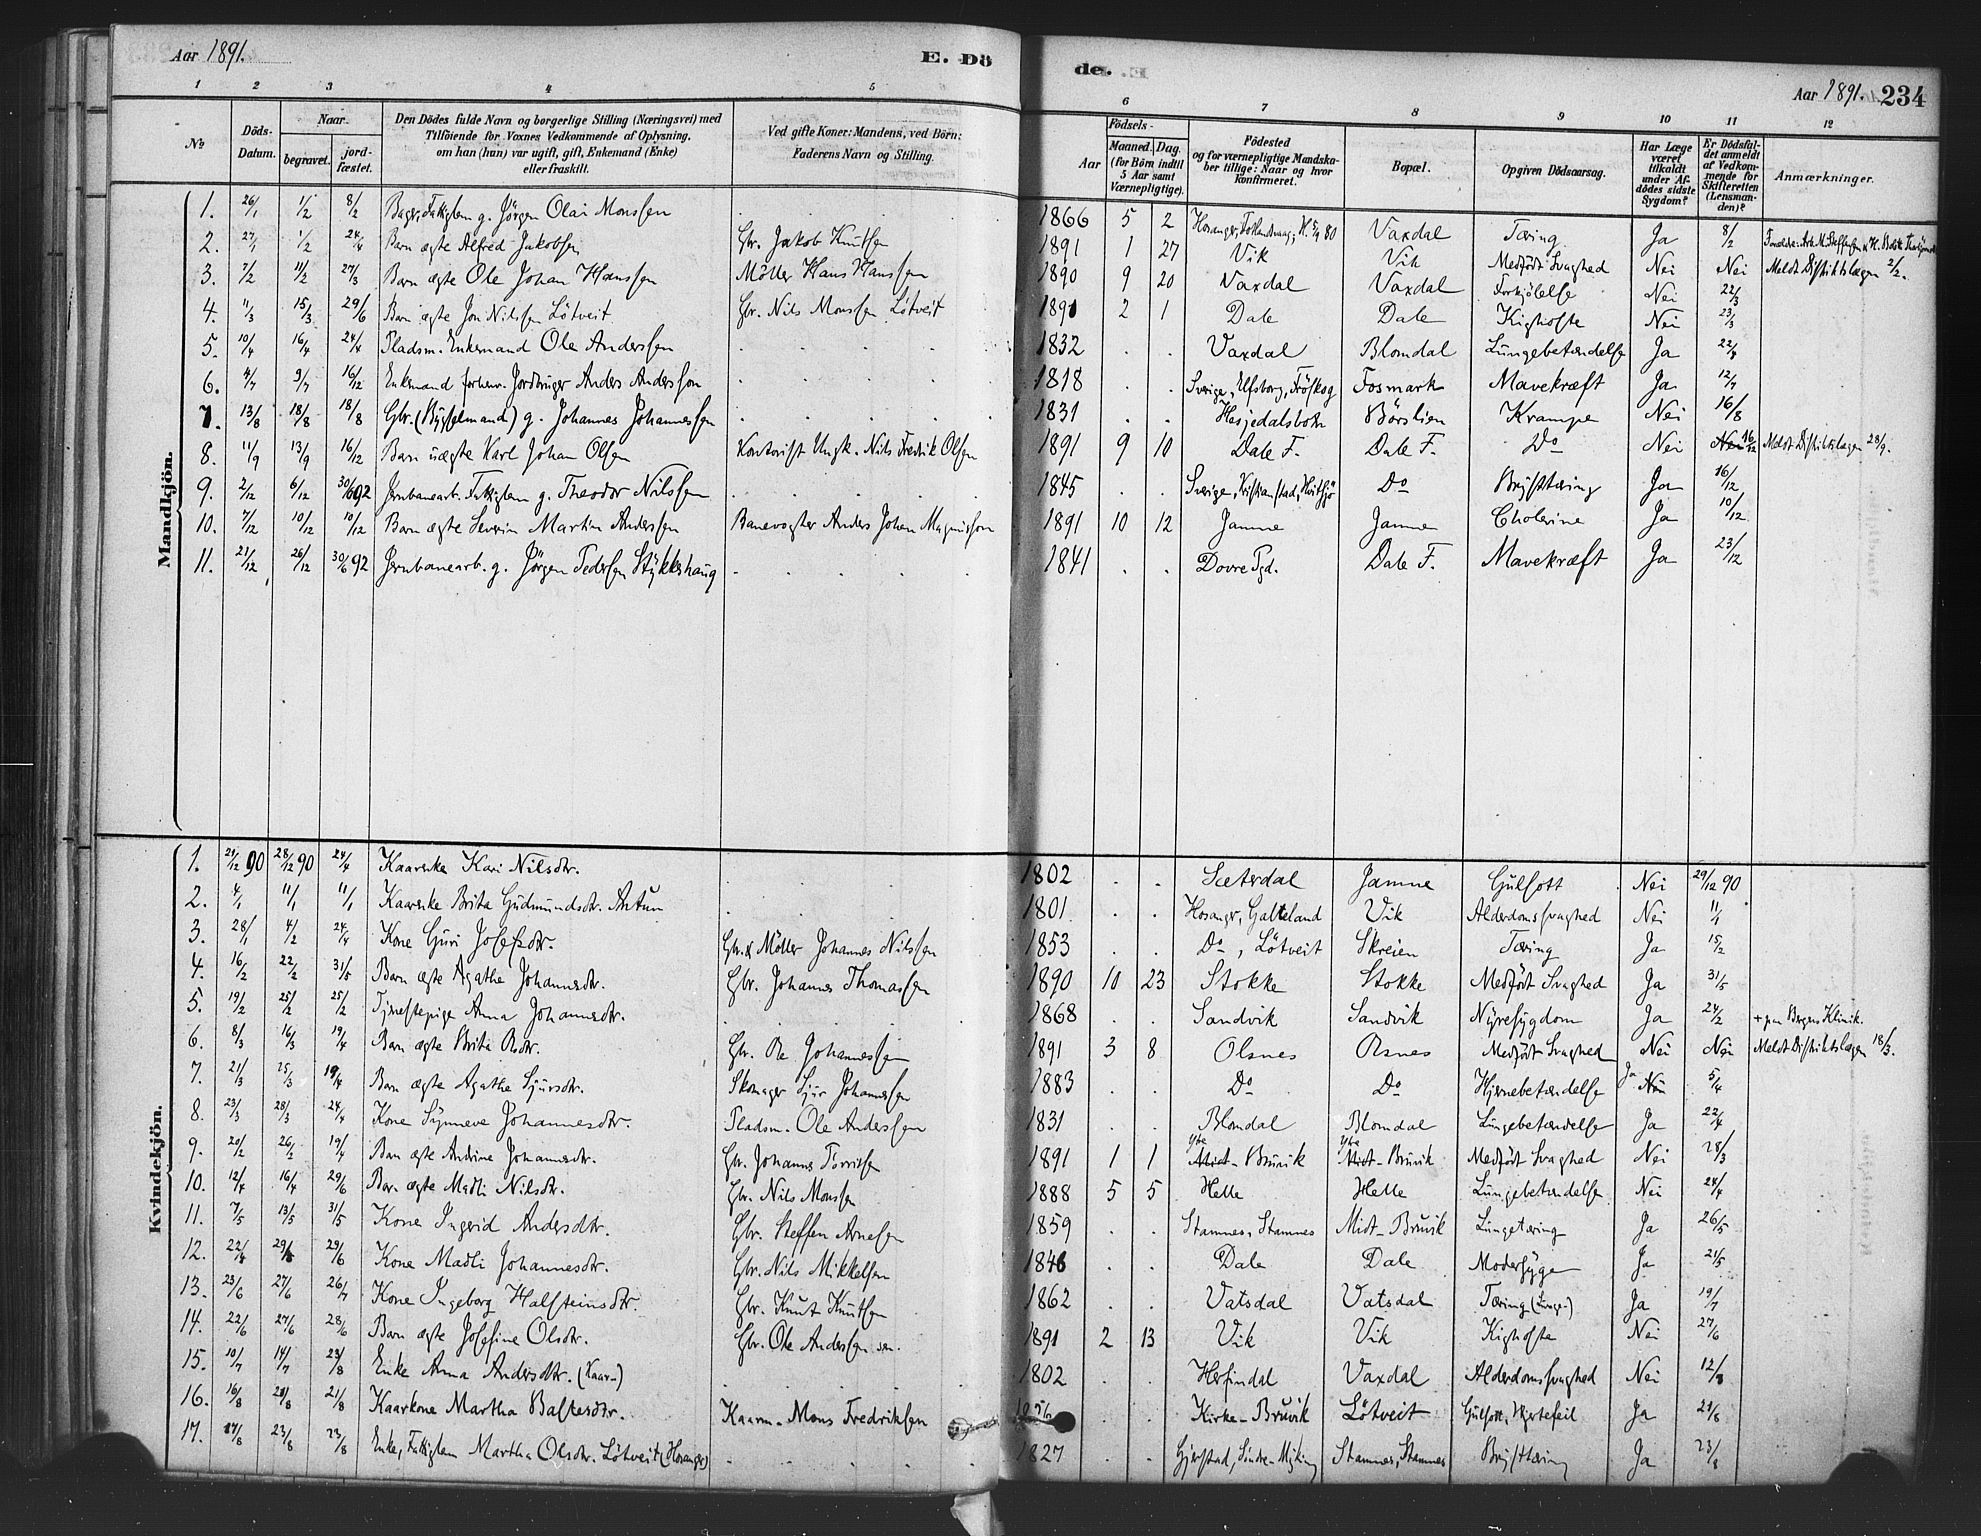 Aar 1891.
E. Dö
de.
Aar 1891. 234
1 2 3 4 5 6 7 8 9 10 11 12
No
Döds-Datum.
Naar
begravet.
jord-fæstet.
Den Dödes fulde Navn og borgerlige Stilling (Næringsvei) med
Tilföiende for Voxnes Vedkommende af Oplysning,
om han (hun) var ugift, gift, Enkemand (Enke)
eller fraskilt.
Ved gifte Koner: Mandens, ved Börn:
Faderens Navn og Stilling.
Födsels-
Aar
Maaned. Dag.
(for Börn indtil 5 Aar samt Værnepligtige).
Födested
og for værnepligtige Mandskaber tillige: Naar og hvor konfirmeret.
Bopæl.
Opgiven Dödsaarsag.
Har Læge været tilkaldt under Afdödes sidste Sygdom?
Er Dödsfaldet anmeldt af Vedkommende for Skifteretten (Lensmanden)?
Anmærkninger.
Mandkjön.
1. 26/1 1/2 8/2 g. Jörgen Olai Monssen . 1866 5 2 Hosanger, Vaxdal Tæring Ja 8/2
2. 27/1 1/2 24/4 Barn ægte Alfred Jakobsen Gbr. Jakob Knutsen 1891 1 27 Vik Vik Medfödt Svaghed Nei Nei Meldt Distriktslægen 2/2.
3. 7/2 11/2 27/3 Barn ægte Ole Johan Hanssen Möller Hans Hanssen 1890 9 20 Vaxdal Vaxdal Forkjölelse Nei 22/3
4. 11/3 15/3 29/6 Barn ægte Jon Nilssen Lötveit Gbr. Nils Monssen Lötveit 1891 2 1 Dale Dale Kighoste Nei 23/3
5. 10/4 16/4 24/4 Pladsm. Enkemand Ole Anderssen . 1832 . . Vaxdal Blomdal Lungebetændelse Ja 22/4
6. 4/7 9/7 16/12 Enkemand forhenv. Jordbruger Anders Andersson . 1818 . . Sverige, Elfsborg, Fröskog Fosmark Mavekræft Ja 12/7
7. 13/8 18/8 18/8 Gbr. g. Johannes Johannessen . 1831 . . Hesjedalsbotn Börslien Krampe Nei 16/8
8. 11/9 13/9 16/12 Barn uægte Karl Johan Olsen Kontorist Ungk. Nils Fredrik Olsen 1891 9 10 Dale F. Dale F. Do Nei 16/12 Meldt Distriktslægen 28/9.
9. 2/12 6/12 30/6 92 Jernbanearb. Fattiglem g. Theodor Nilssen . 1845 . . Sverige, Kristianstad, Do Brysttæring Ja 16/12
10. 7/12 10/12 10/12 Barn ægte Severin Martin Anderssen Banevogter Anders Johan Magnusson 1891 10 12 Jamne Jamne Cholerine Ja 10/12
11. 21/12 26/12 30/6 92 Jernbanearb. g. Jörgen Pedersen Stykkshaug . 1841 . . Dovre Pgd. Dale F. Mavekræft Ja 23/12
Kvindekjön.
1. 21/12 90 28/12 90 24/4 Kaarenke Kari Nilsdtr. . 1802 . . Sæterdal Jamne Gulsott Nei 29/12 90
2. 4/1 11/1 11/1 Kaarenke Brita Gudmundsdtr. Antun . 1801 . . Hosanger, Galteland Vik Alderdomssvaghed Nei 11/1
3. 28/1 4/2 24/4 Kone Guri Josefsdtr. Gbr. & Möller Johannes Nilssen 1853 . . Do, Lötveit Skreien Tæring Ja 15/2
4. 16/2 22/2 31/5 Barn ægte Agathe Johannesdtr. Gbr. Johannes Thomassen 1890 10 23 Stokke Stokke Medfödt Svaghed Ja 31/5
5. 19/2 25/2 25/2 Tjenestepige Anna Johannesdtr. . 1868 . . Sandvik Sandvik Nyresygdom Ja 24/2 + paa Bergens Klinik.
6. 8/3 16/3 19/4 Barn ægte Brita Osdtr. Gbr. Ole Johannessen 1891 3 8 Olsnes Olsnes Medfödt Svaghed Nei Nei Meldt Distriktslægen 18/3.
7. 21/3 25/3 19/4 Barn ægte Agathe Sjursdtr. Skomager Sjur Johannessen 1883 . . Do Do Hjernebetændelse Ja Nei 5/4
8. 23/3 28/3 24/4 Kone Synneve Johannesdtr. Pladsm. Ole Anderssen 1831 . . Blomdal Blomdal Lungebetændelse Ja 22/4
9. 20/2 26/2 19/4 Barn ægte Andrine Johannesdtr. Gbr. Johannes 1891 1 1 Ytre Midt-Bruvik Ytre Midt-Bruvik Medfödt Svaghed Nei 28/3
10. 12/4 16/4 29/6 Barn ægte Madli Nilsdtr. Gbr. Nils Monssen 1888 5 5 Helle Helle Lungebetændelse Nei 24/4
11. 7/5 13/5 31/5 Kone Ingerid Andersdtr. Gbr. Steffen Arnesen 1859 . . Stamnes, Stamnes Midt-Bruvik Lungetæring Ja 26/5
12. 22/4 29/4 29/6 Kone Madli Johannesdtr. Gbr. Nils Mikkelsen 1846 . . Dale Dale Modersyge Ja 21/5
13. 23/6 27/6 26/7 Kone Ingeborg Halsteinsdtr. Gbr. Knut Knutsen 1862 . . Vatsdal Vatsdal Tæring (Lunge-) Ja 19/7
14. 22/6 27/6 28/6 Barn ægte Josefine Olsdtr. Gbr. Ole Anderssen sen. 1891 2 13 Vik Vik Kighoste Nei 27/6
15. 10/7 14/7 23/8 Enke Anna Andersdtr. (Kaar-) . 1802 . . Herfindal Vaxdal Alderdomssvaghed Nei 12/8
16. 16/8 20/8 21/8 Kaarkone Martha Bastesdtr. Kaarm. Mons Fredriksen . . Kirke-Bruvik Lötveit Gulsott, Hjertefeil Ja 21/8
17. 17/8 23/8 23/8 Enke, Fattiglem Martha Olsdtr. Lötveit (Hosanger) . 1827 . . Gjerstad, Söndre- Stamnes, Stamnes Brysttæring Ja 23/8